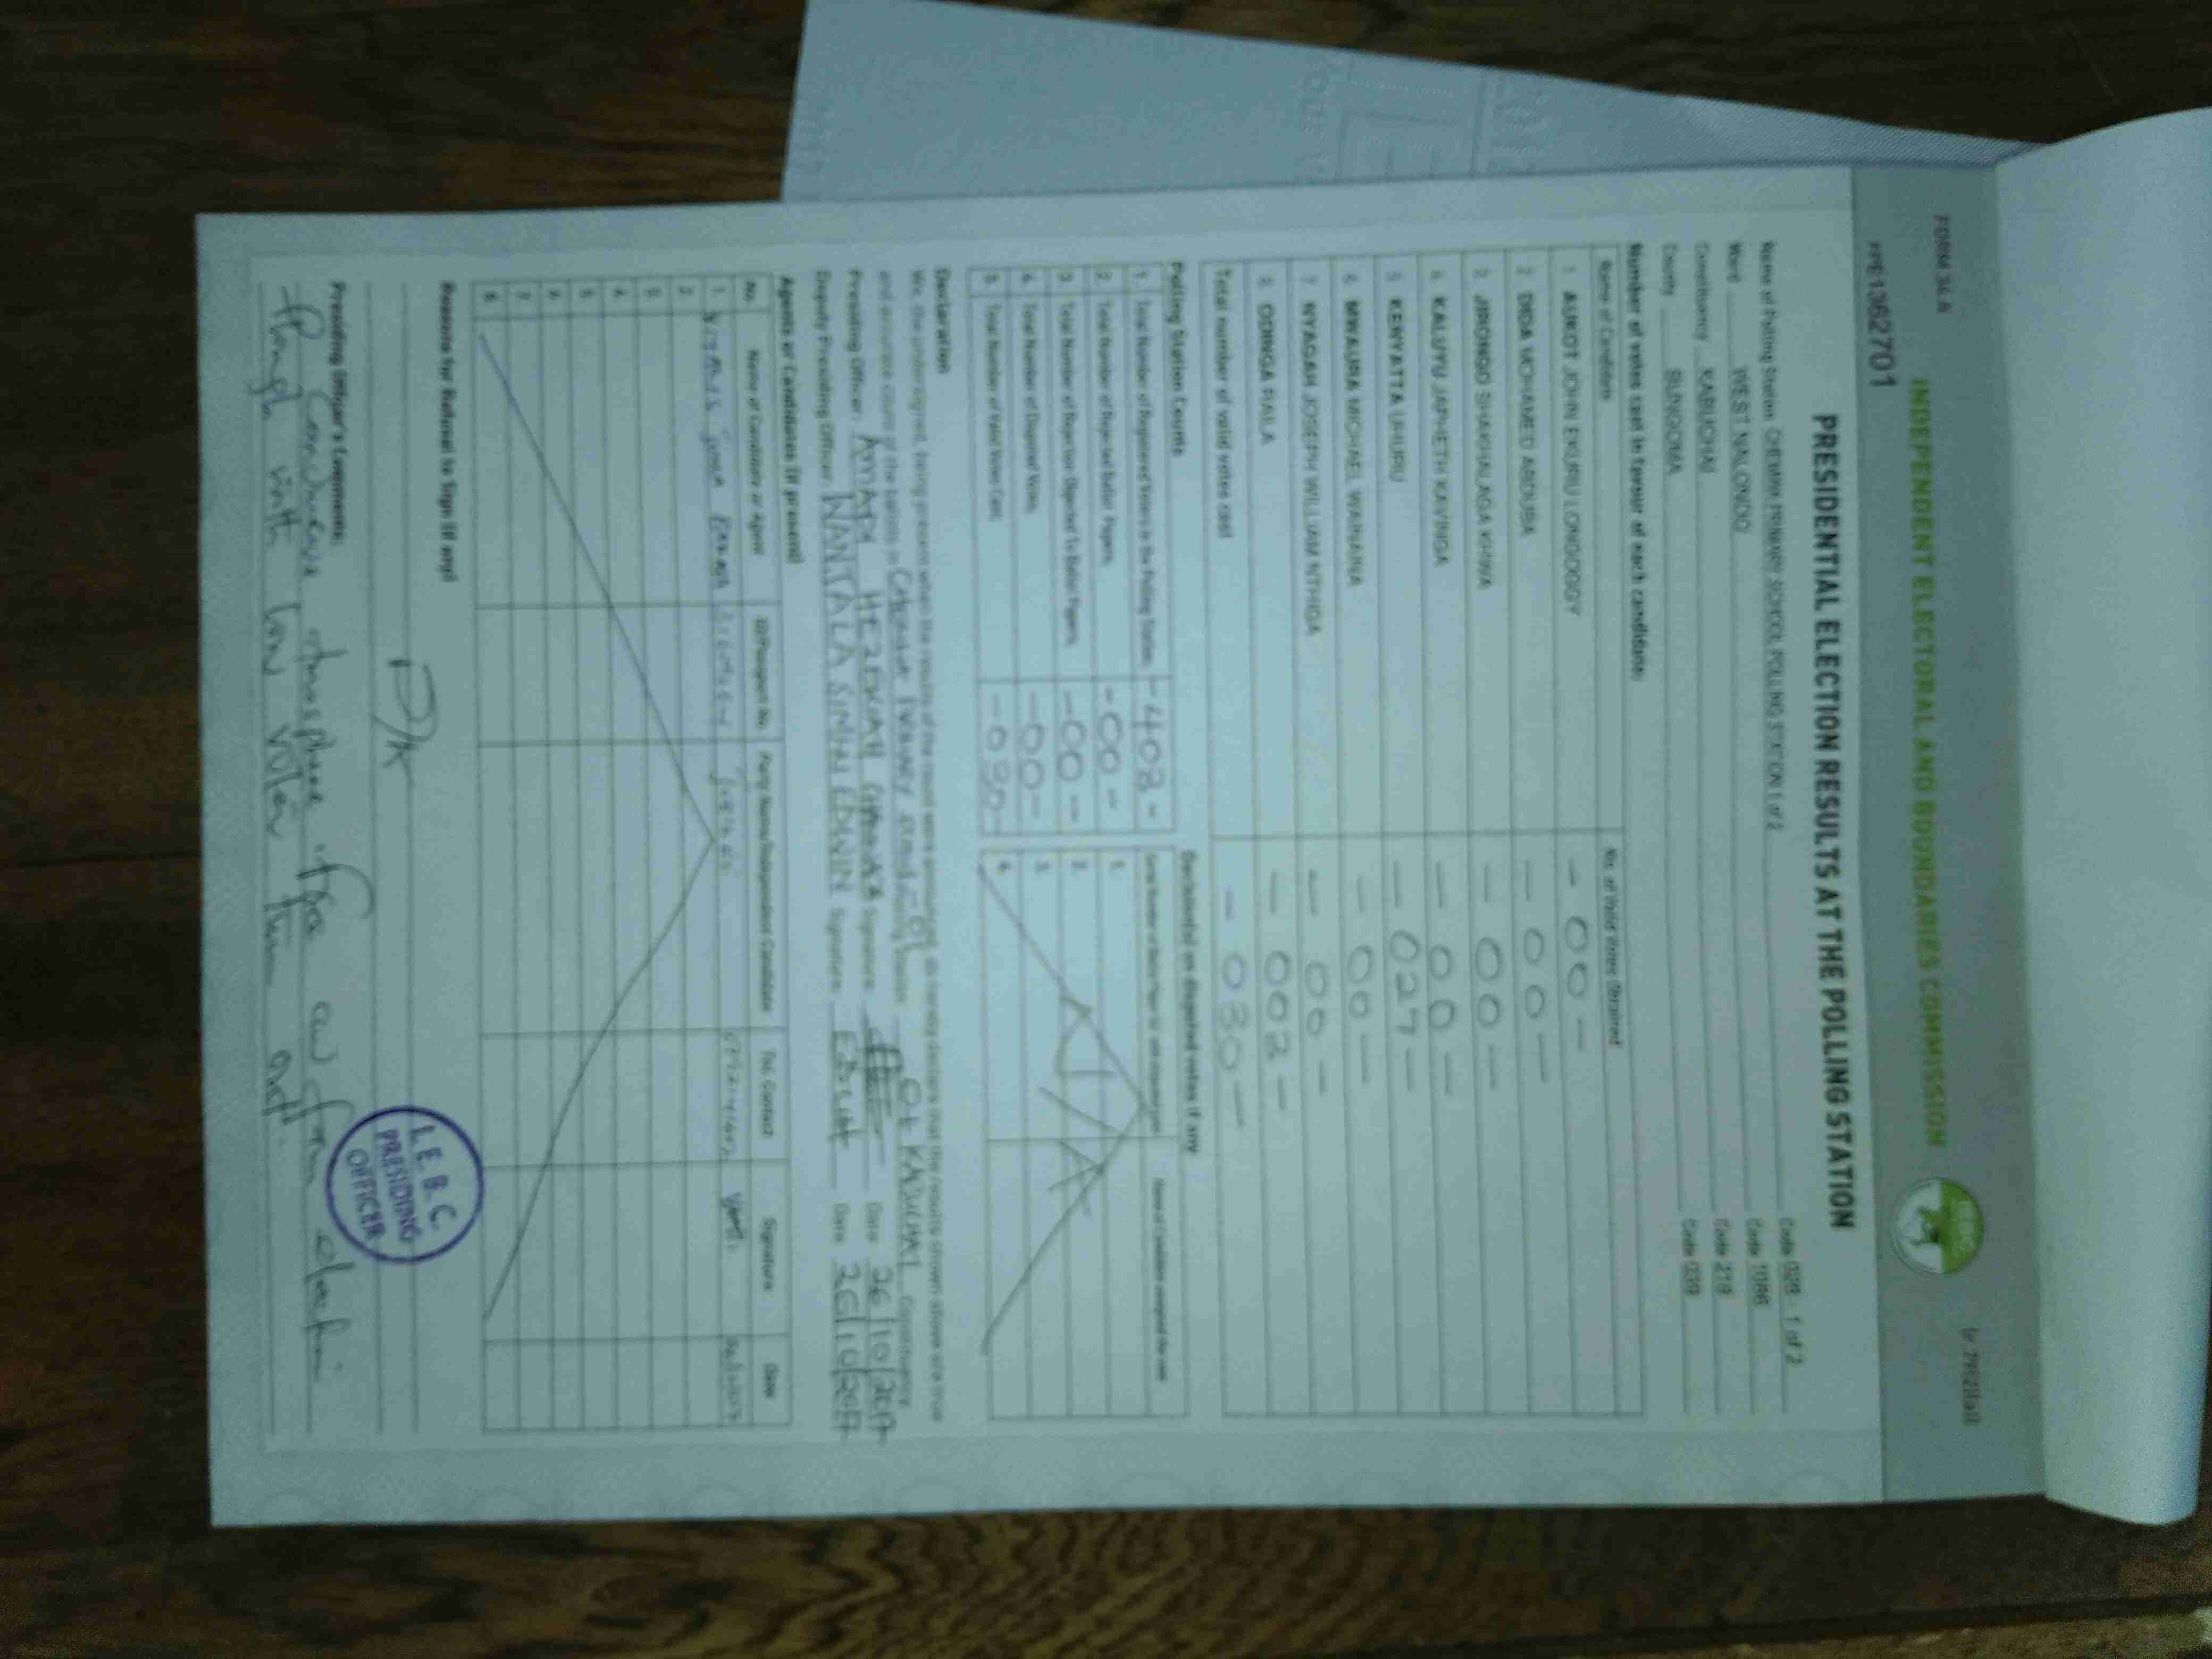 FORM 34 A
INDEPENDENT ELECTORAL AND BOUNDARIES COMMISSION
PRESIDENTIAL ELECTION RESULTS AT THE POLLING STATION
Name of Polling Station PRIMARY SCHOOL POLLING STATION 1 of 2 Code 028 - 1 of 2
Ward WEST NALONDO Code 1086
Constituency KABUCHAI Code 218
County BUNGOMA Code 039
Number of votes cast in favour of each candidate:
Name of Candidate No. of Valid Votes Obtained
1. AUKOT JOHN EKURU LONGOGGY - 00 -
2. DIDA MOHAMED ABDUBA - 00 -
3. JIRONGO SHAKHALAGA KHWA - 00 -
4. KALUYU JAPHETH KAVINGA - 00 -
5. KENYATTA UHURU - 027 -
6. MWAURA MICHAEL WAINAINA - 00 -
7. NYAGAH JOSEPH WILLIAM NTHIGA - 00 -
8. ODINGA RAILA - 002 -
Total number of valid votes cast - 030 -
Polling Station Counts
1. Total Number of Registered Voters in the Polling Station - 403 -
2. Total Number of Rejected Ballot Papers - 00 -
3. Total Number of Rejection Objected To Ballot Papers - 00 -
4. Total Number of Disputed Votes - 00 -
5. Total Number of Valid Votes Cast - 030
Decision(s) on disputed votes if any
1.
2.
3.
4.
N/A
Declaration
We, the undersigned, being present when the results of the count were announced, do hereby declare that the results shown above are a true
and accurate count of the ballots in Polling Station KABUCHAI Constituency
Presiding Officer HEZEKIAH Signature Date 26/10/2017
Deputy Presiding Officer WANJALA SIMIYU EDWIN Signature Date 26/10/2017
Agents or Candidates (if present)
No. Name of Candidate or Agent ID/Passport No. Party Name/Independent Candidate Tel. Contact Signature Date
1. Jubilee
2.
3.
4.
5.
6.
7.
8.
Reasons for Refusal to Sign (if any)
N/A
Presiding Officer's Comments:
Conducive atmosphere for a free election
though with low voter turn out.
I.E.B.C.
PRESIDING
OFFICER